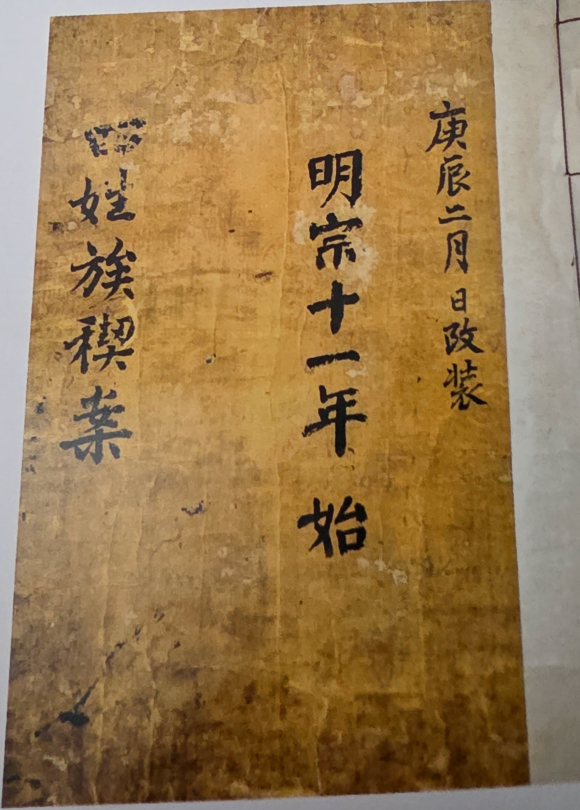 庚辰二月 日改装
明宗十一年 始
四姓族稧案